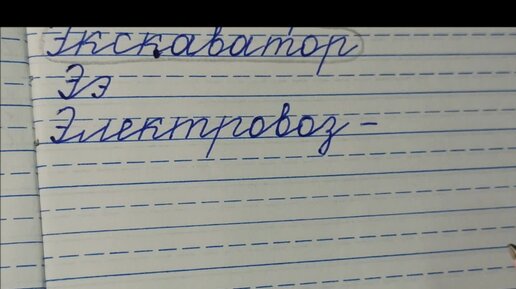 Экскаватор
Ээ
Электровоз -